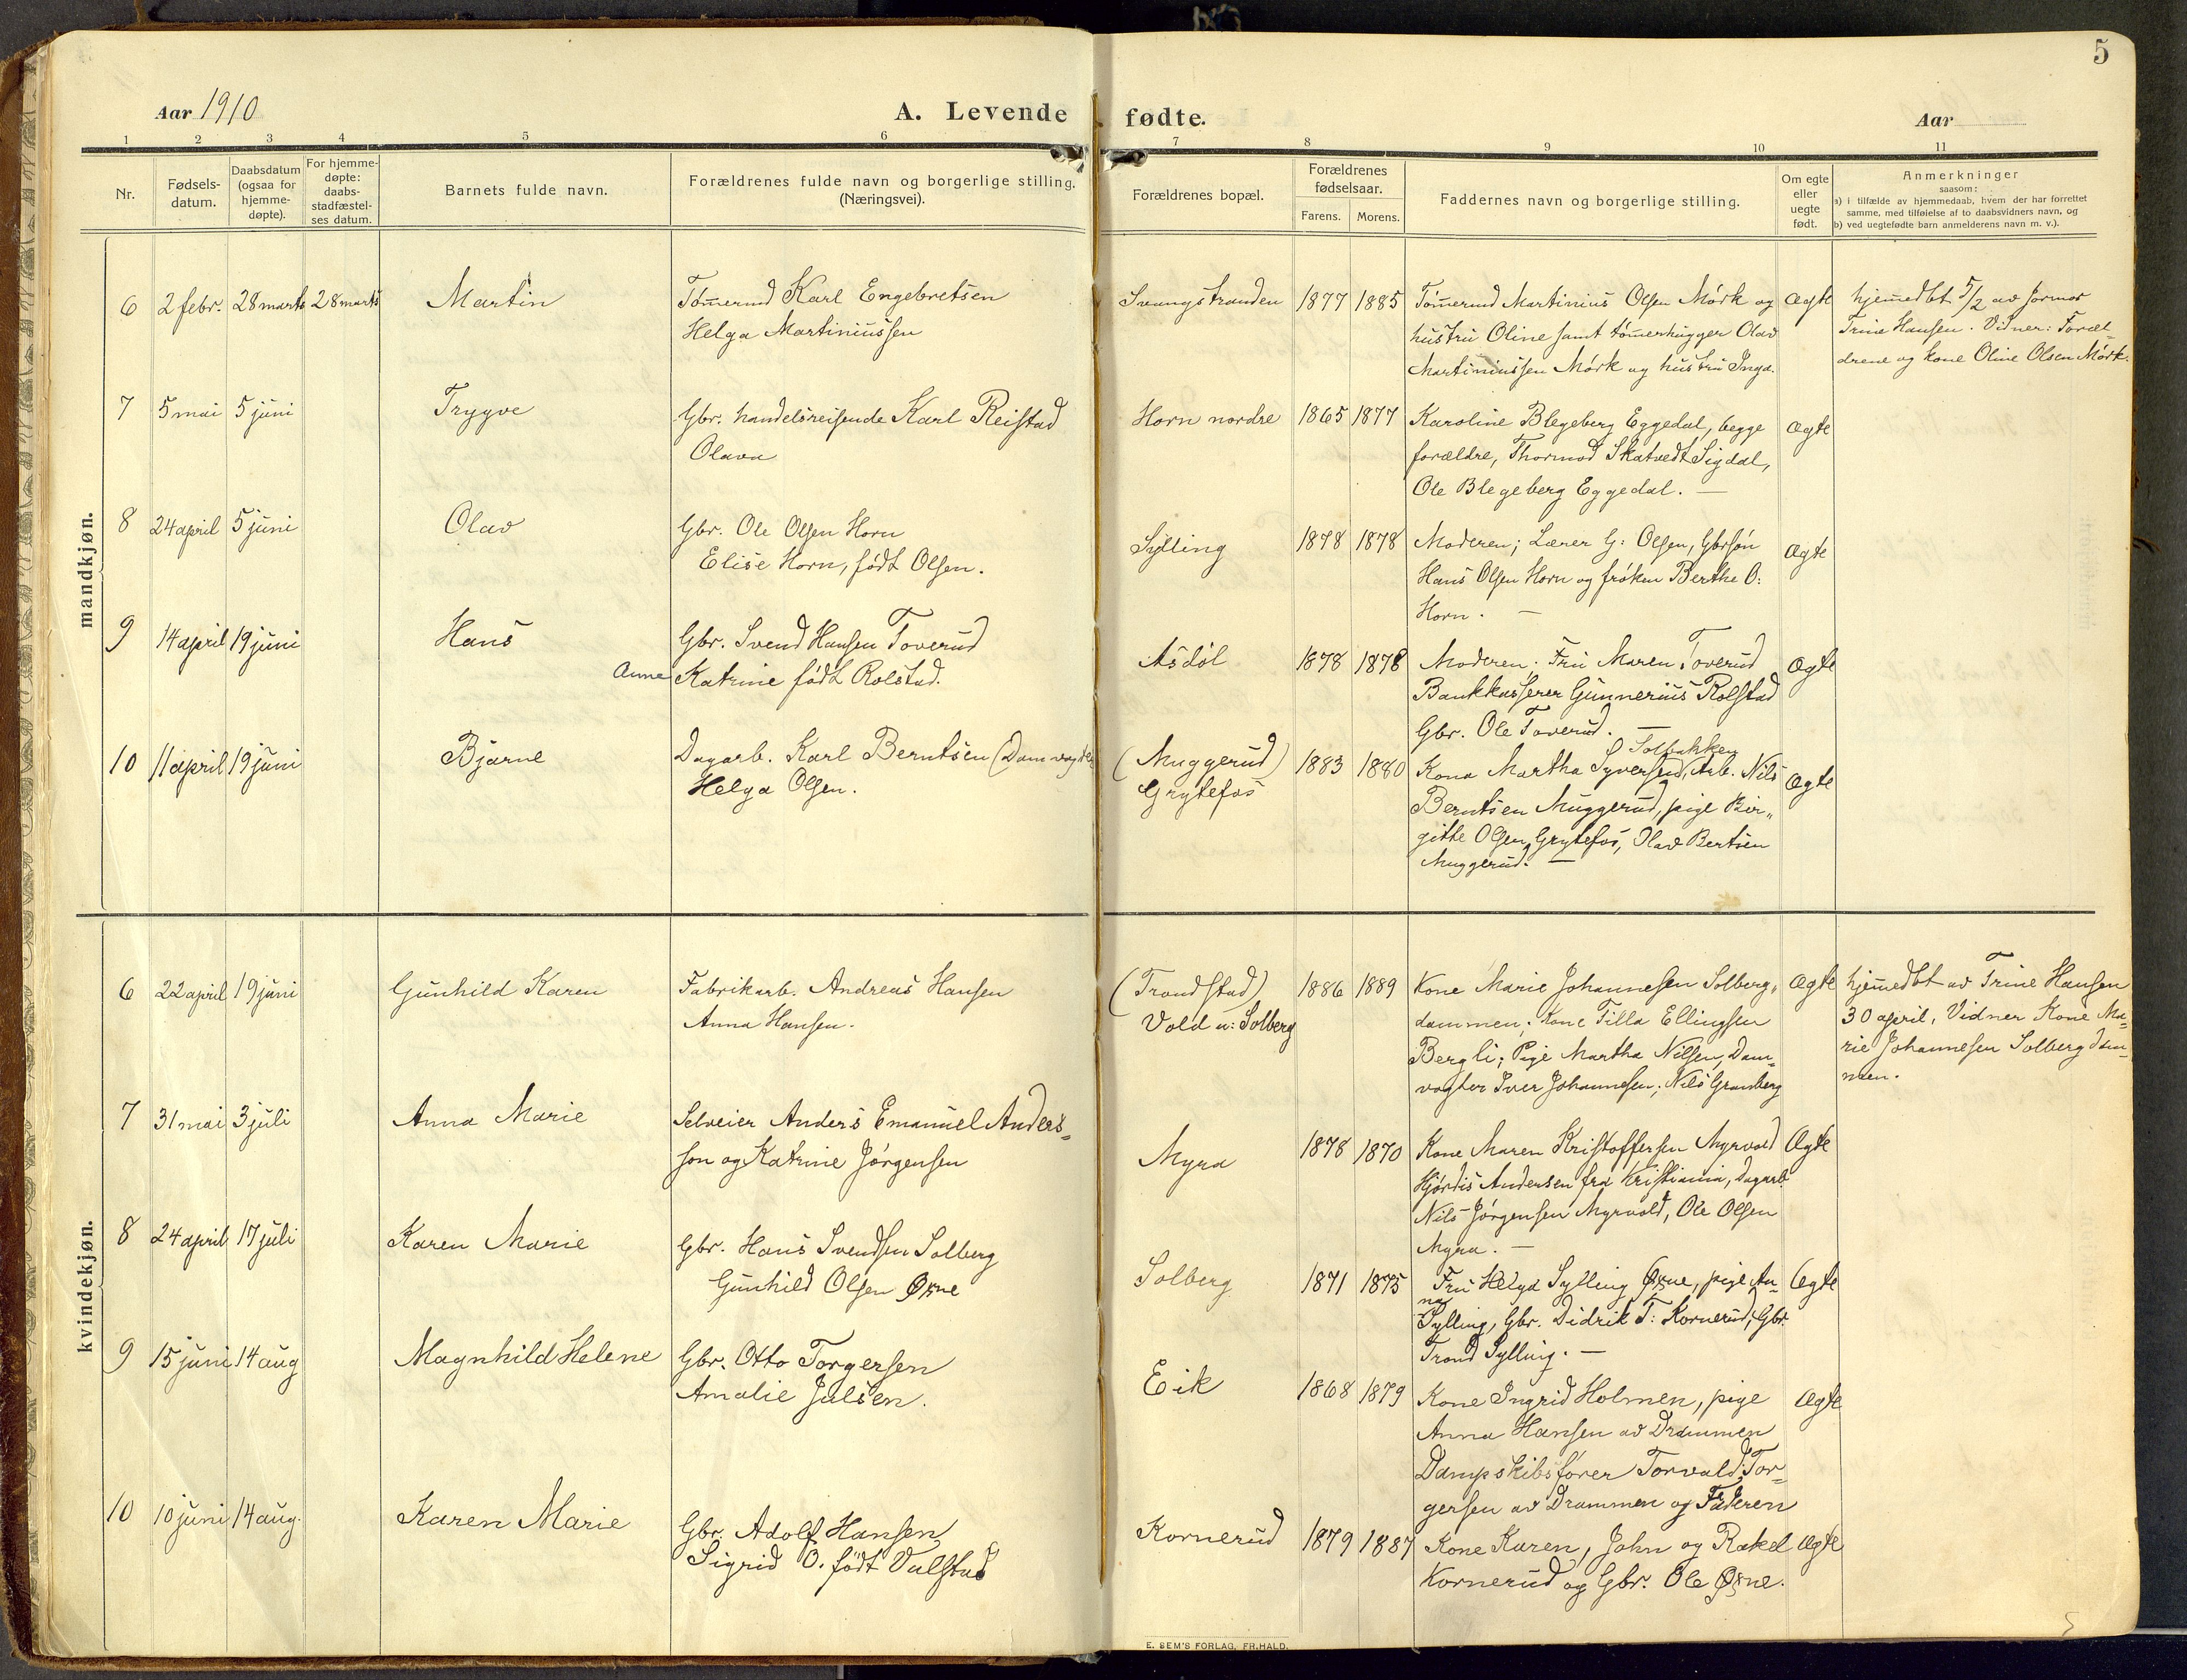 5
Aar 1910
A. Levende fødte.
Aar
1 2 3 4 5 6 7 8 9 10 11
Nr.
Fødsels-
datum.
Daabsdatum
(ogsaa for
hjemme-
døpte).
For hjemme-
døpte:
daabs-
stadfæstel-
ses datum.
Barnets fulde navn.
Forældrenes fulde navn og borgerlige stilling.
(Næringsvei).
Forældrenes bopæl.
Forældrenes
fødselsaar.
Farens. Morens.
Faddernes navn og borgerlige stilling.
Om egte
eller
uegte
født.
Anmerkninger
saasom:
a) i tilfælde av hjemmedaab, hvem der har forrettet
samme, med tilføielse af to daabsvidners navn, og
b) ved uegtefødte barn anmelderens navn m. v.).
mandkjøn.
6 2 febr. 28 marts 28 marts Martin
Tømermd Karl Engebretsen
Helga Martiniussen
Svangstranden 1877 1885
Tømermd Martinius Olsen Mørk og
hustru Oline samt tømerhugger Olav
Martiniussen Mørk og hustru Inga.
Ægte
hjemedbt 5/2 av Jormor
Trine Hansen. Vidner: Foræl-
drene og kone Oline Olsen Mørk.
7 5 mai 5 juni Trygve
Gbr. handelsreisende Karl Reistad
Olava
Horn nordre 1865 1877
Karoline Blegeberg Eggedal, begge
forældre, Thormod Skatvedt Sigdal,
Ole Blegeberg Eggedal. —
Ægte
8 24 april 5 juni Olav
Gbr. Ole Olsen Horn
Elise Horn, født Olsen.
Sylling 1878 1878
Moderen; Lærer G: Olsen, Gbrsøn
Hans Olsen Horn og frøken Berthe O:
Horn. —
Ægte
9 14 april 19 juni Hans
Gbr. Svend Hansen Toverud
Anne Katrine født Rolstad.
Asdøl 1878 1878
Moderen. Fru Maren Toverud
Bankkasserer Gunnerius Rolstad
Gbr. Ole Toverud. —
Ægte
10 11 april 19 juni Bjarne
Dagarb. Karl Berntsen (Damvogter
Helga Olsen.
(Muggerud)
Grytefos
1883 1880
Solbakken
Kona Martha Syversen, Arb. Nils
Berntsen Muggerud, pige Bir-
gitte Olsen Grytefos, Olav Bertsen
Muggerud. —
Ægte
kvindekjøn.
6 22 april 19 juni Gunhild Karen
Fabrikarb. Andreas Hansen
Anna Hansen.
(Trondstad)
Vold u: Solberg
1886 1889
Kone Marie Johannesen Solberg-
dammen; Kone Tilla Ellingsen
Bergli; Pige Martha Nilsen, Dam-
vogter Iver Johannesen; Nils Granberg
Ægte
hjemedbt av Trine Hansen
30 april, Vidner Kone Ma-
rie Johannesen Solbergdam-
men.
7 31 mai 3 juli Anna Marie
Selveier Anders Emanuel Anders-
son og Katrine Jørgensen
Myra 1878 1870
Kone Maren Kristoffersen Myrvold
Hjørdis Andersen fra Kristiania, Dagarb.
Nils Jørgensen Myrvold, Ole Olsen
Myra. —
Ægte
8 24 april 17 juli Karen Marie
Gbr. Hans Svendsen Solberg
Gunhild Olsen Øxne
Solberg 1871 1875
Fru Helga Sylling Øxne, pige An-
na
Sylling, Gbr. Didrik T: Kornerud, Gbr.
Trond Sylling. —
Ægte
9 15 juni 14 aug Magnhild Helene
Gbr. Otto Torgersen
Amalie Julsen.
Eik 1868 1879
Kone Ingrid Holmen, pige
Anna Hansen av Drammen
Dampskibsfører Torvald Tor-
gersen av Drammen og Faderen
Ægte
10 10 juni 14 aug. Karen Marie
Gbr. Adolf Hansen
Sigrid O. født Valstad
Kornerud 1879 1887
Kone Karen, John og Rakel
Kornerud og Gbr. Ole Øxne.
Ægte
E. SEM'S FORLAG, FR.HALD.
5